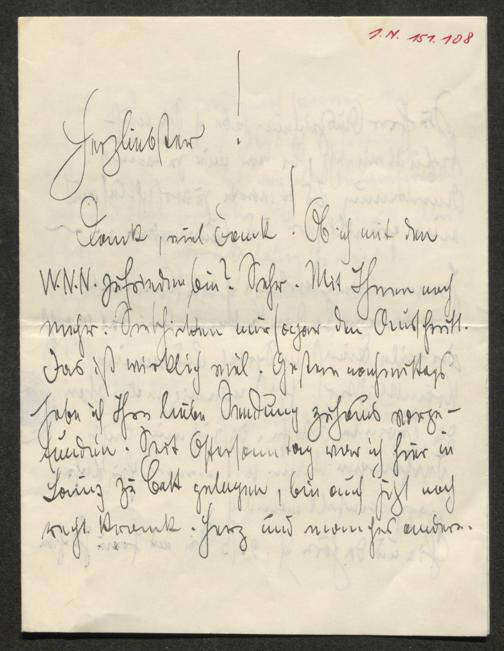 I.N. 151.108
Herzliebster!
Dank, viel Dank. Ob ich mit den
W.N.N. zufrieden bin? Sehr. Mit Ihnen noch
mehr. Sie schickten mir sogar den Ausschnitt.
Das ist wirklich viel. Gestern nachmittags
habe ich Ihre liebe Sendung zuhaus vorge-
funden. Seit Ostersonntag war ich hier in
zu Bett gelegen, bin auch jetzt noch
recht krank. Herz und manches andere.